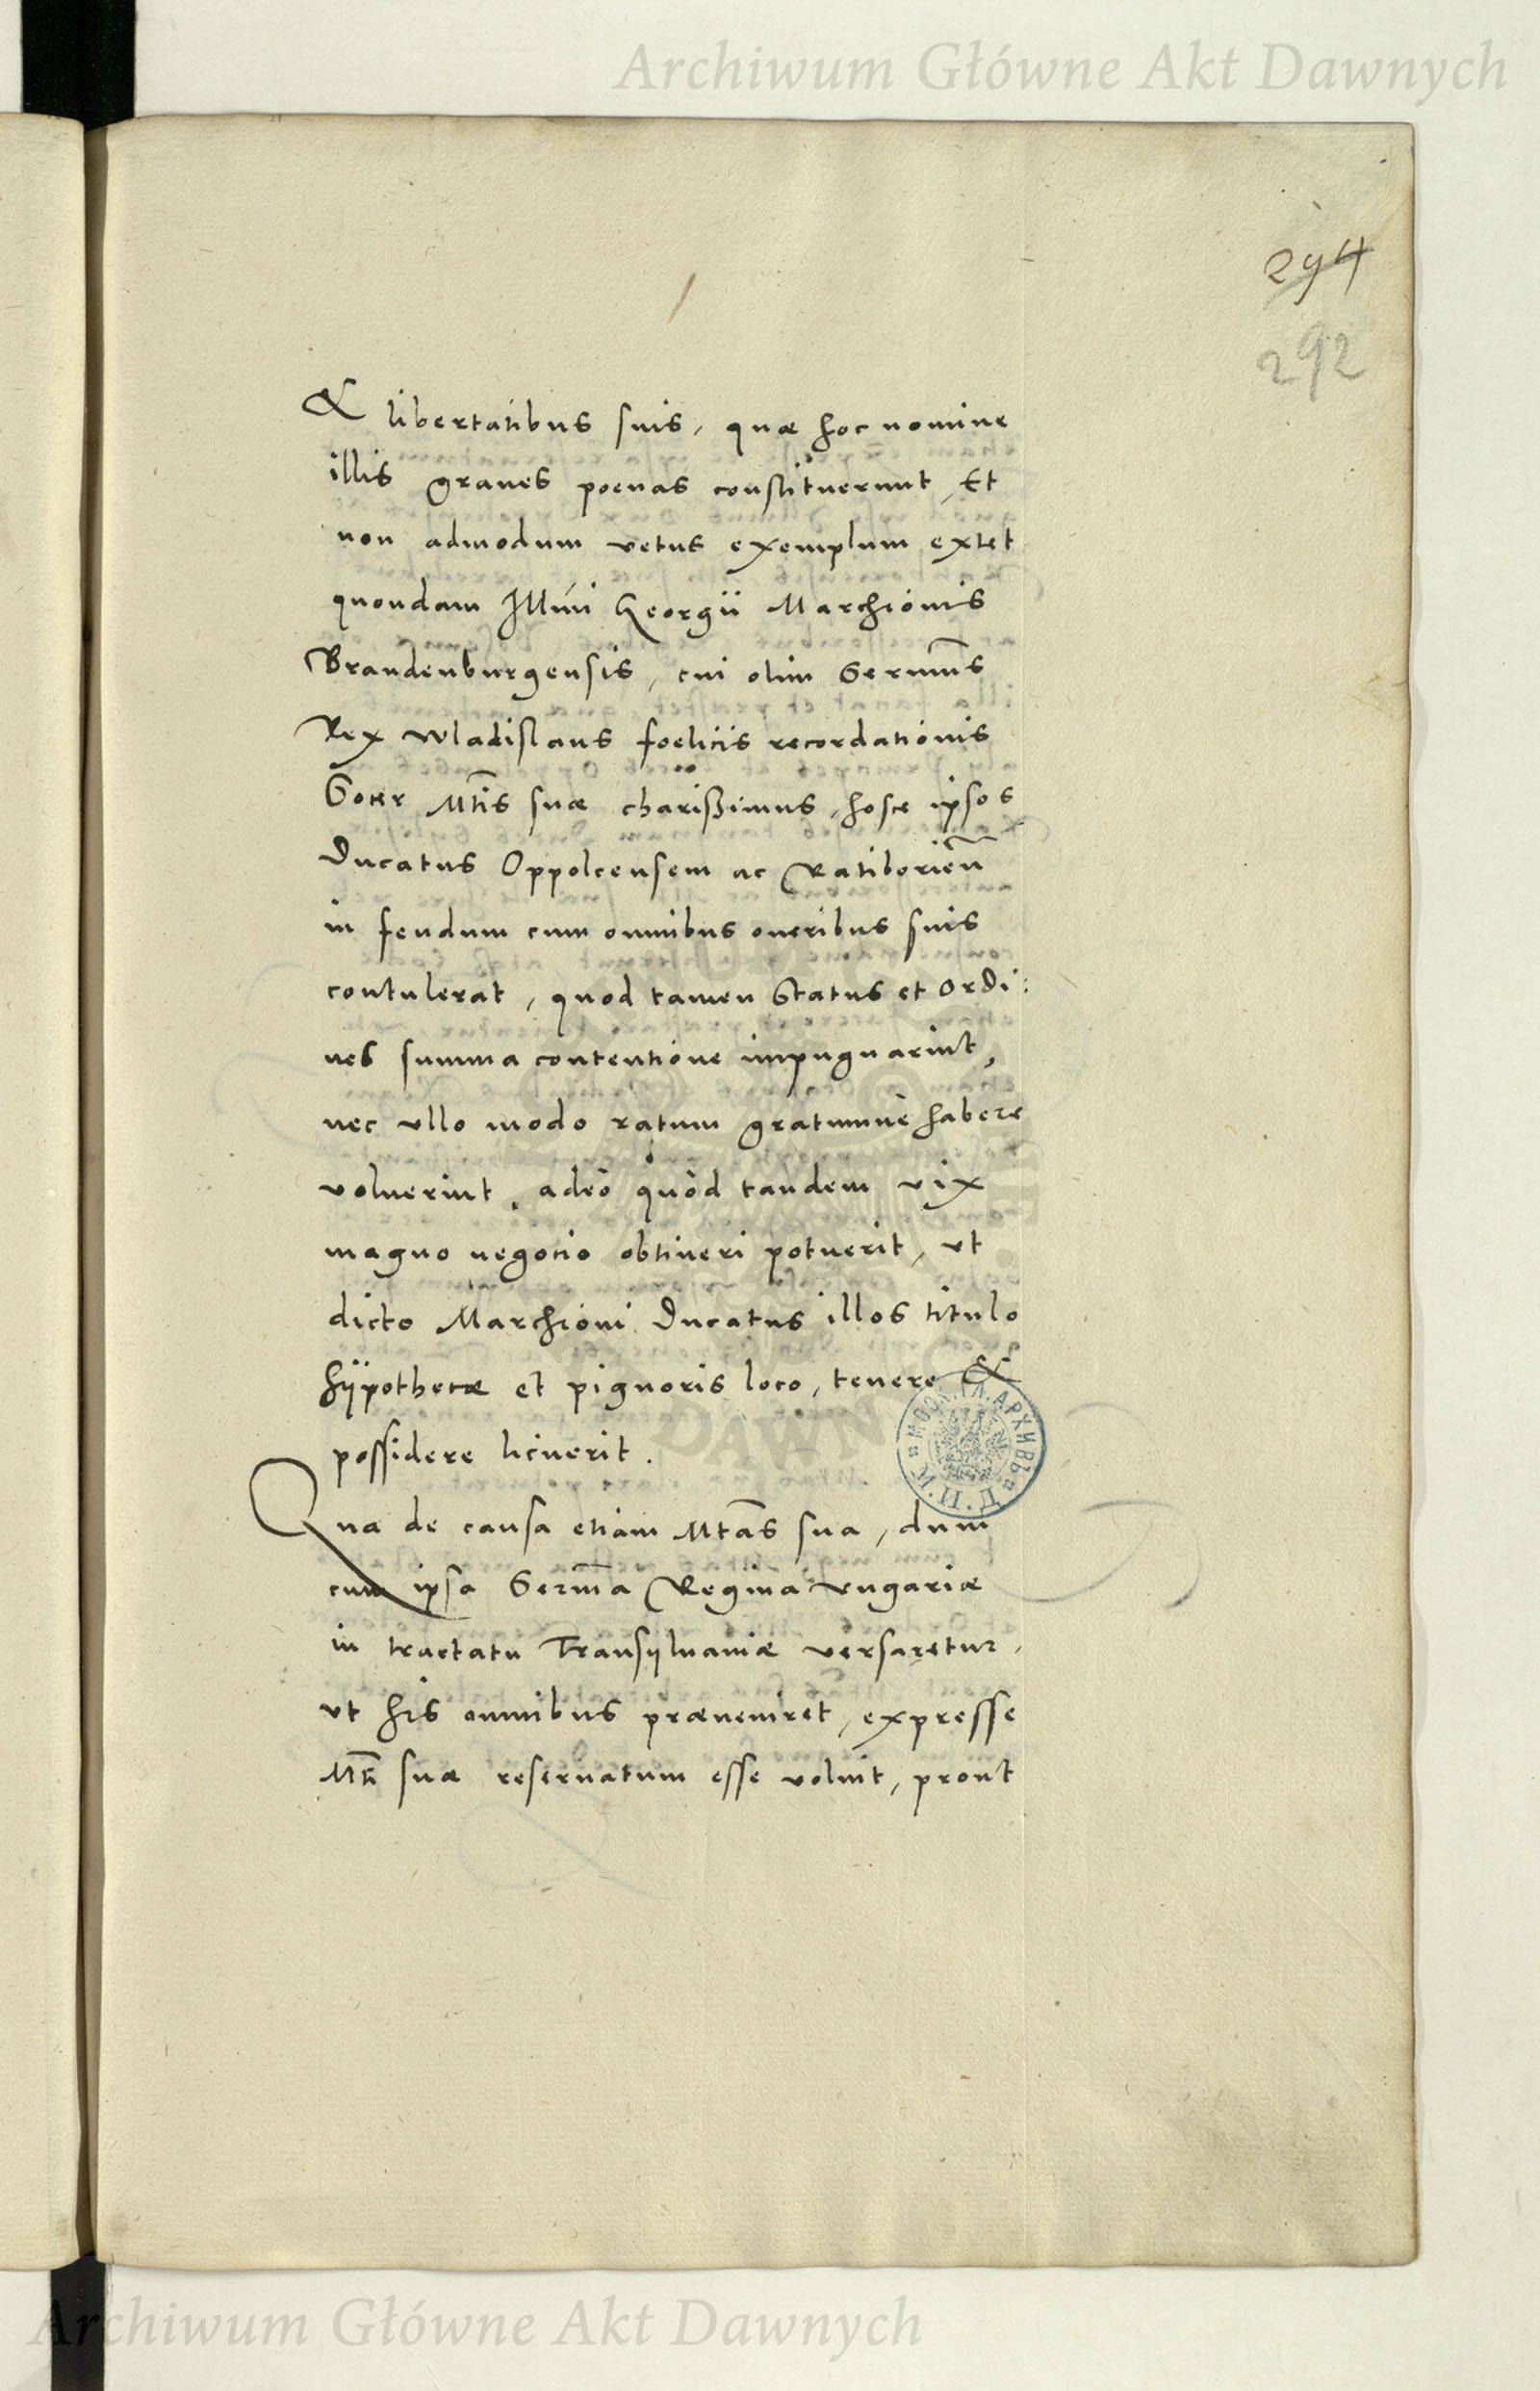 Archiwum Główne Akt Dawnych
294
292
& libertatibus suis, quæ hoc nomine
illis graues poenas constituerunt, Et
non admodum vetus exemplum extet
quondam Illmi Georgii Marchionis
Brandenburgensis, cui olim Sermus
Rex Wladislaus foelicis recordationis
Socer Mtis suæ charißimus, hosce ipsos
Ducatus Oppoleensem ac Ratiborien̄
in feudum cum omnibus oneribus suis
contulerat, quod tamen Status et Ordi:
nes summa contentione impugnarint,
nec vllo modo ratum gratumuè habere
voluerint, adeò quòd tandem vix
magno negotio obtineri potuerit, vt
dicto Marchioni Ducatus illos titulo
hÿpothecæ et pignoris loco, tenere &
possidere licuerit.
Qua de causa etiam Mtas sua, dum
cum ipsa Serma Regina Vngariæ
in tractatu Transÿluaniæ versaretur,
vt his omnibus præueniret, expresse
Mti suæ reseruatum esse voluit, prout
Archiwum Główne Akt Dawnych